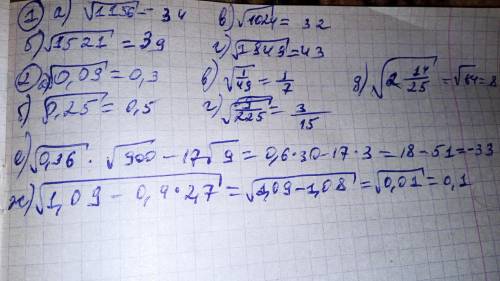 ① а) √1156 = 34 в) √1024 = 32
б) √1521 = 39 г) √1849 = 43
② а) √0,09 = 0,3 в) √1/49 = 1/7 д) √2 14/25 = √64 = 8
б) √0,25 = 0,5 г) √9/225 = 3/15
е) √0,36 · √900 - 17√9 = 0,6·30-17·3 = 18-51=-33
ж) √1,09 - 0,4·2,7 = √1,09-1,08 = √0,01 = 0,1